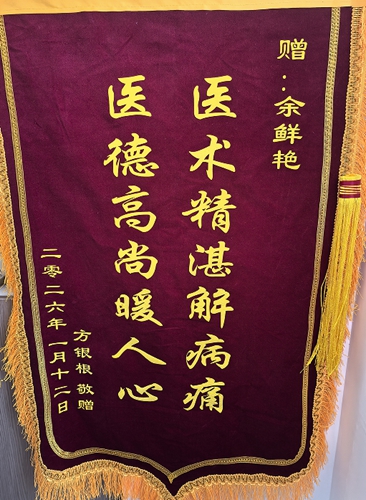 赠：余鲜艳
医术精湛解病痛
医德高尚暖人心
方银根 敬赠
二零二六年一月十二日